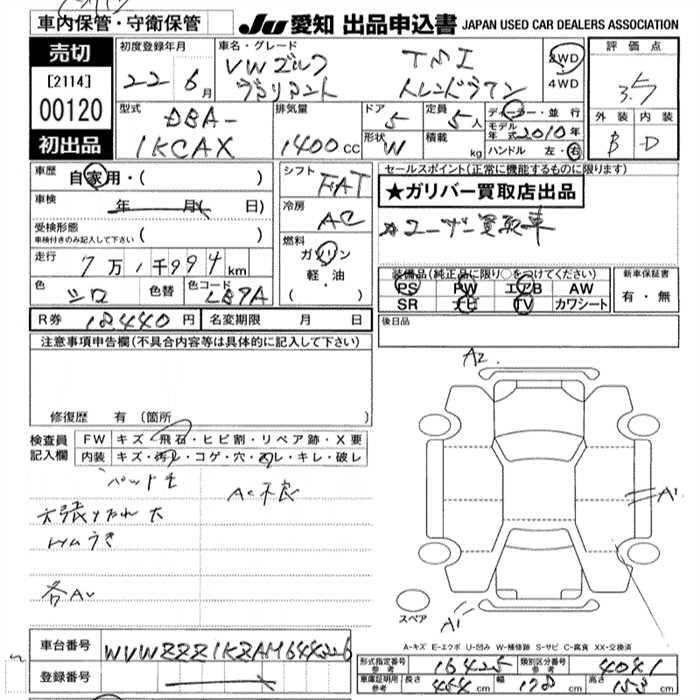 車内保管・守衛保管
JU 愛知 出品申込書 JAPAN USED CAR DEALERS ASSOCIATION
売切
[2114]
00120
初出品
初度登録年月
22年6月
車名・グレード
VWゴルフ TMI
ヴァリアント トレンドライン
2WD
4WD
評価点
3.5
外装 内装
B D
型式
DBA-
1KCAX
排気量
1400cc
ドア
5
形状
W
定員
5人
積載
kg
ディーラー・並行
モデル年式 2010年
ハンドル 左・右
車歴
自家用・( )
車検
年 月 日)
受検形態
車検付きのみ記入して下さい ( )
走行
7万1千994km
色
シロ
色替
色コード
LB9A
シフト
FAT
冷房
AC
燃料
ガソリン
軽・油
( ・ )
セールスポイント(正常に機能するものに限ります)
★ガリバー買取店出品
☆ユーザー買取車
装備品(純正品に限り○をつけてください)
PS PW エアB AW
SR ナビ TV カワシート
新車保証書
有・無
R券 18440円 名変期限 月 日
後日品
注意事項申告欄(不具合内容等は具体的に記入して下さい)
修復歴 有(箇所
検査員
記入欄
FW キズ・飛石・ヒビ割・リペア跡・X要
内装 キズ・汚レ・コゲ・穴・スレ・キレ・破レ
AC不良
天張りたれ大
トリムうき
各AU
A2
A1
A1
スペア
A-キズ E-エクボ U-凹み W-補修跡 S-サビ C-腐食 XX-交換済
車台番号 WVWZZZ1KZAM644226
登録番号
形式指定番号 参考 16425 類別区分番号 参考 4041
車庫証明用 参考 長さ 454cm 幅 178cm 高さ 153cm